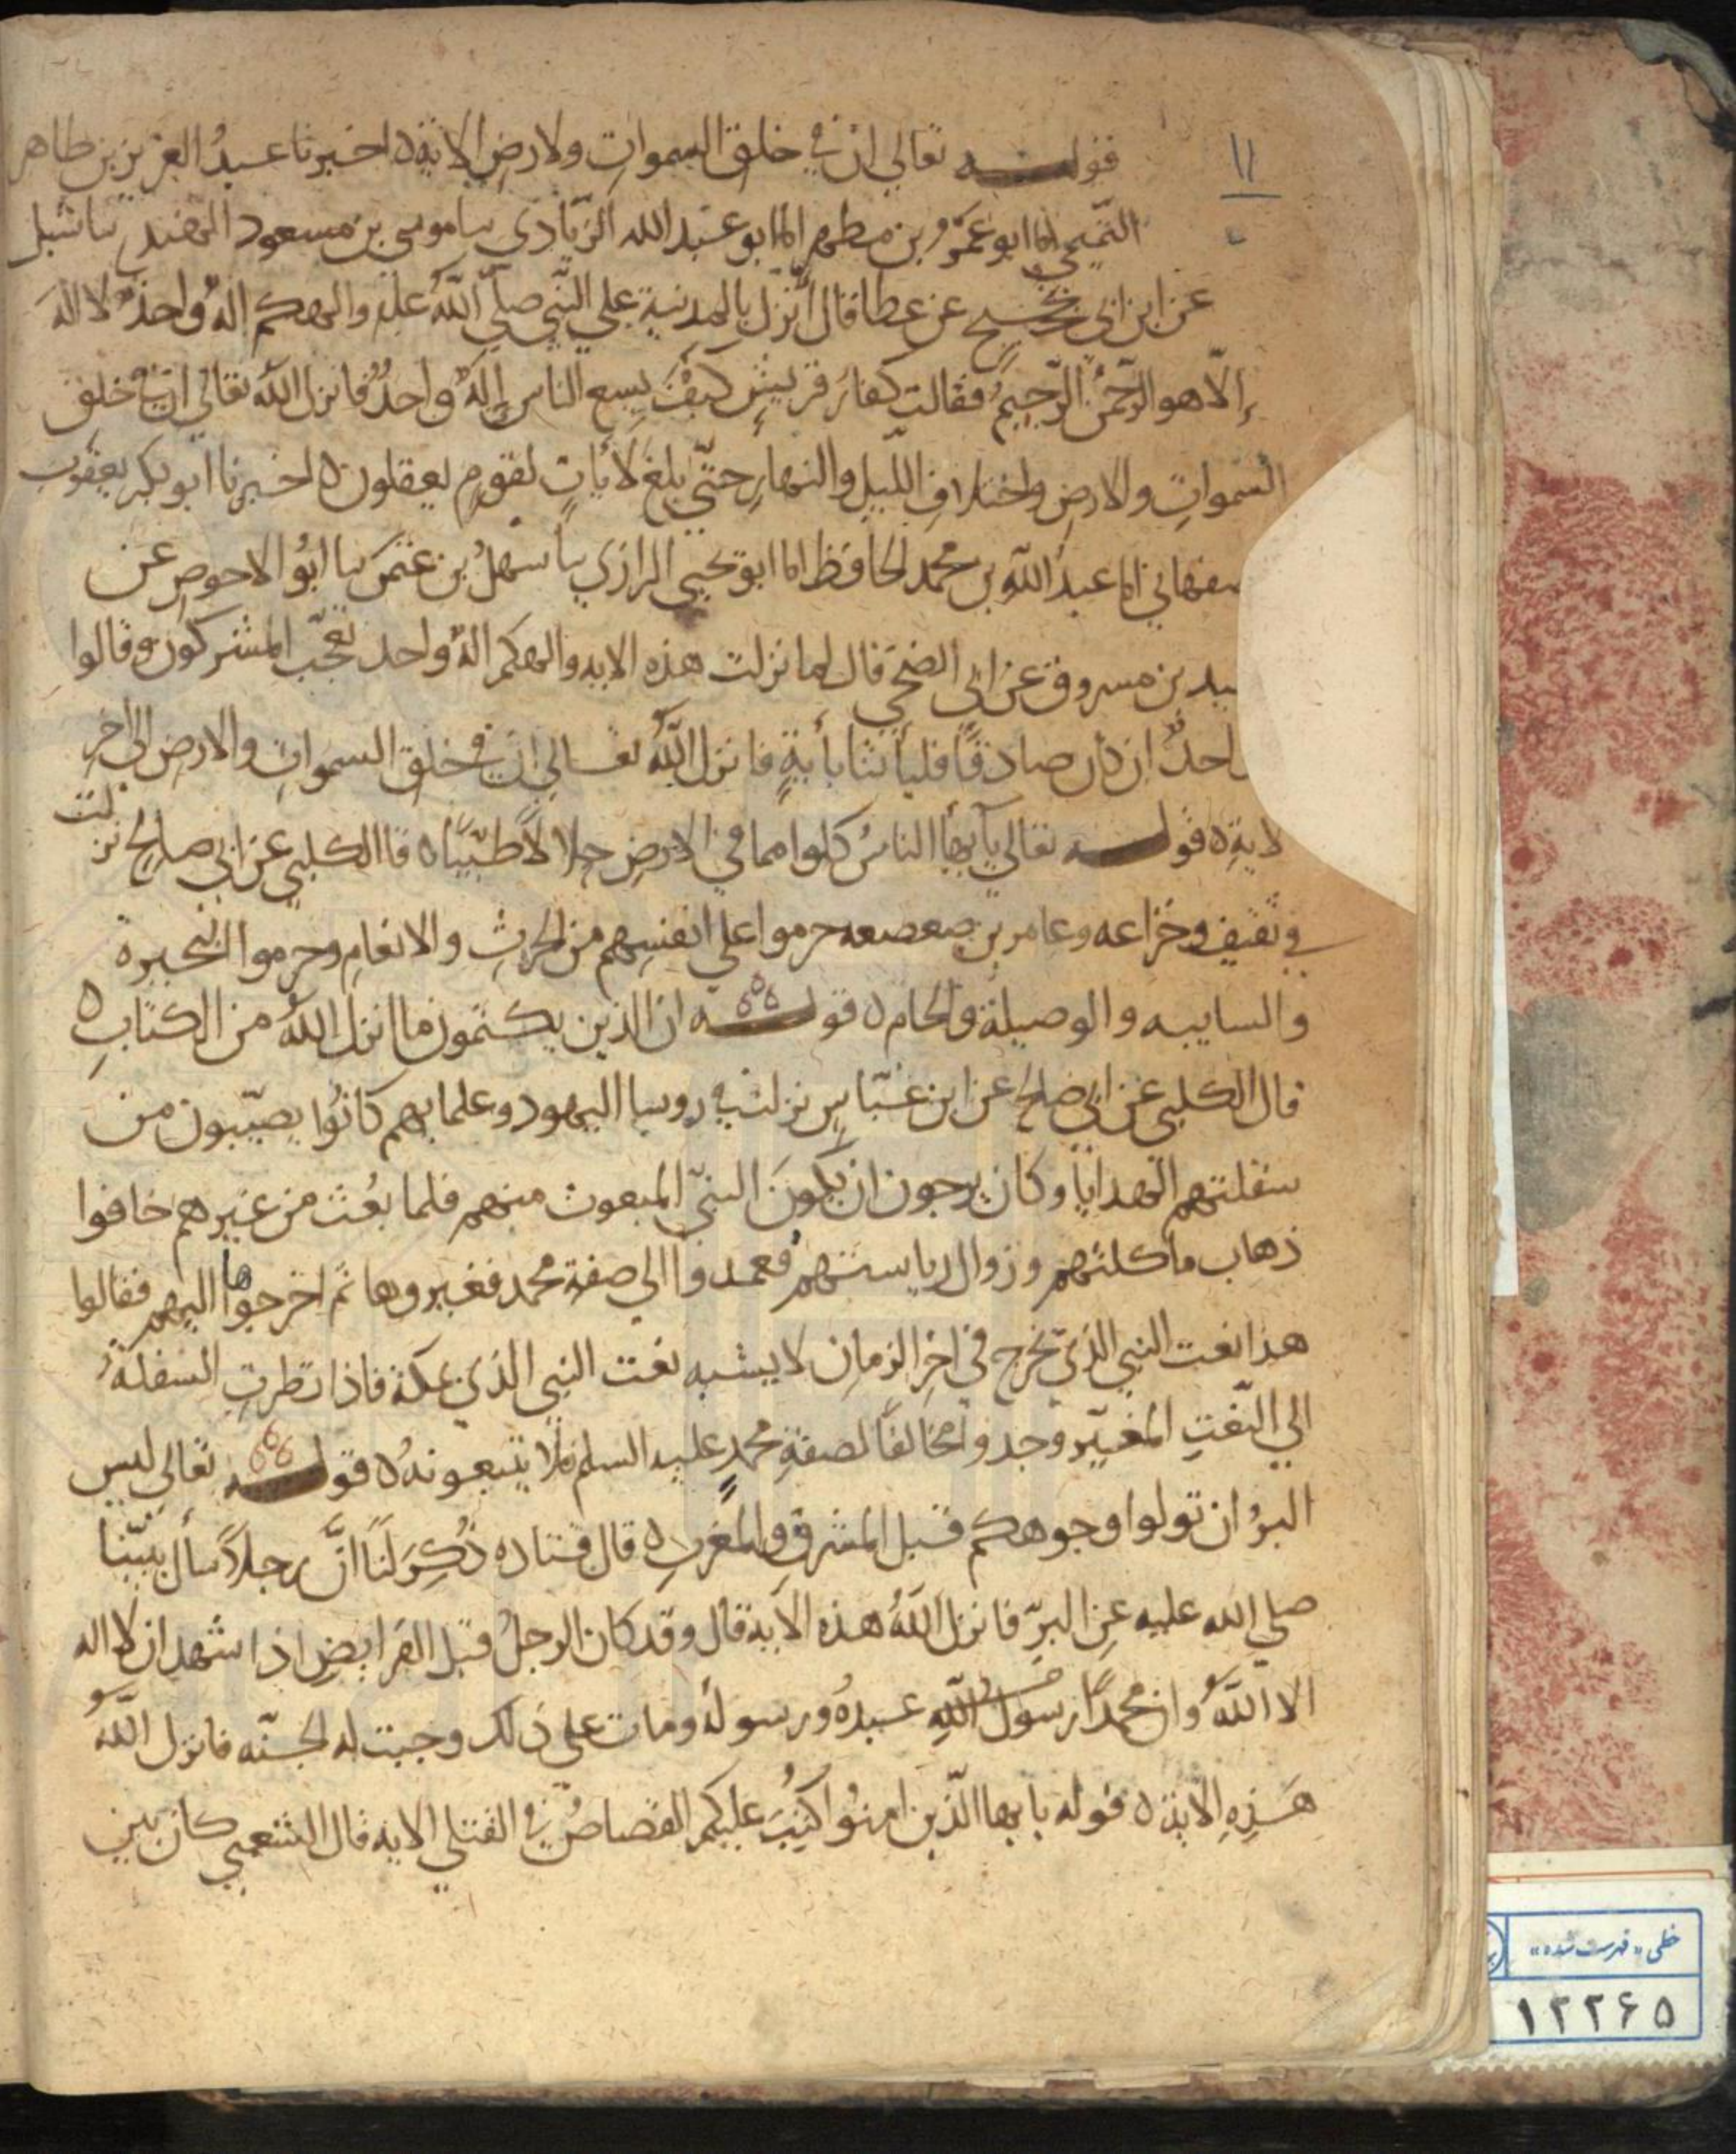 ١١
قوله تعالى ان في خلق السموات ولارض الاية ه اخبرنا عبدُ العزيز بن طاهر
التّميمي انا ابو عَمْرو بن مطهر انا ابو عبد الله الزّيادي نا موسى بن مسعود النهدي نا شبل
عن ابن ابي نجيح عن عطا قال أُنزل بالمدينة على النّبي صلّى اللّهُ عليه والهكم الهٌ واحدٌ لا اله
إلّا هو الرّحمنُ الرّحيمُ فقالت كفارُ قريشٍ كيفَ يسع الناس إلهٌ واحدٌ فانزل اللّهُ تعالى ان في خلق
السموات والارض واختلافِ اللّيل والنهارِ حتّى بلغ لأياتٍ لقومٍ يعقلون ه اخبرنا ابو بكر يعقوب
صفهاني انا عبدُ اللّهِ بن محمد الحافظ انا ابو يحيى الرازي نا سهلُ بن عثمن نا ابوُ الاحوص عن
عيد بن مسروق عن ابي الضحى قال لما نزلت هذه الايه والهكم الهٌ واحد تعجّب المشركون وقالوا
احدٌ ان كان صادقًا فليأتنا بأيةٍ فانزل اللّهُ تعالى ان في خلق السموات والارض الى اخرِ
لاية ه قوله تعالى يآ ايها الناسُ كلوا مما في الارضِ حلالاً طيّبًا ه قا الكلبي عن ابي صالح نزلت
في ثقيف وخزاعه وعامر بن صعصعه حرموا على انفسِهم من الحرثِ والانعامِ وحرموا البحيرة
والسايبه والوصيلة والحام ه قوله ان الذين يكتمون ما انزل اللّهُ من الكتابِ ه
قال الكلبى عن ابي صالح عن ابن عبّاسٍ نزلت في روسا اليهود وعلمايهم كانُوا يصيّبون من
سفلتهم الهدايا وكان يرجون ان يكونَ النبيّ المبعوث منهم فلما بُعث من غيرهم خافوا
ذهاب ماكلتهم وزوال رياستهم فعمدوا الى صفة محمد فغيروها ثم اخرجوها اليهم فقالوا
هذا نعت النبي الذي يخرج في اخرِ الزمانِ لا يشبه نعت النبي الذي بمكة فاذا نظرتِ السفلةُ
الى النّعتِ المغيّر وجدوا مخالفًا لصفةِ محمدٍ عليه السلم فلا يتبعونهُ ه قوله تعالى ليس
البرُ ان تولوا وجوهكم قبل المشرق والمغربِ ه قال قتاده ذُكِرَ لَنَا انَّ رجلاً سأل نبيّنا
صلي الله عليه عنِ البرّ فانزل اللّهُ هذه الاية قال وقد كان الرجلُ قبل الفرايضِ اذا شهد ان لا اله
الا اللّهُ وان محمدًا رسول اللّهِ عبدهُ ورسولهُ ومات على ذلك وجبت له الجنّه فانزل اللّهُ
هَذِهِ الاية ه قوله يا يها الّذين امنُوا كتِبَ عليكم القصاصُ في القتلى الايه قال الشعبي كان بين
خطی «فهرست شده»
١٢٢٦٥